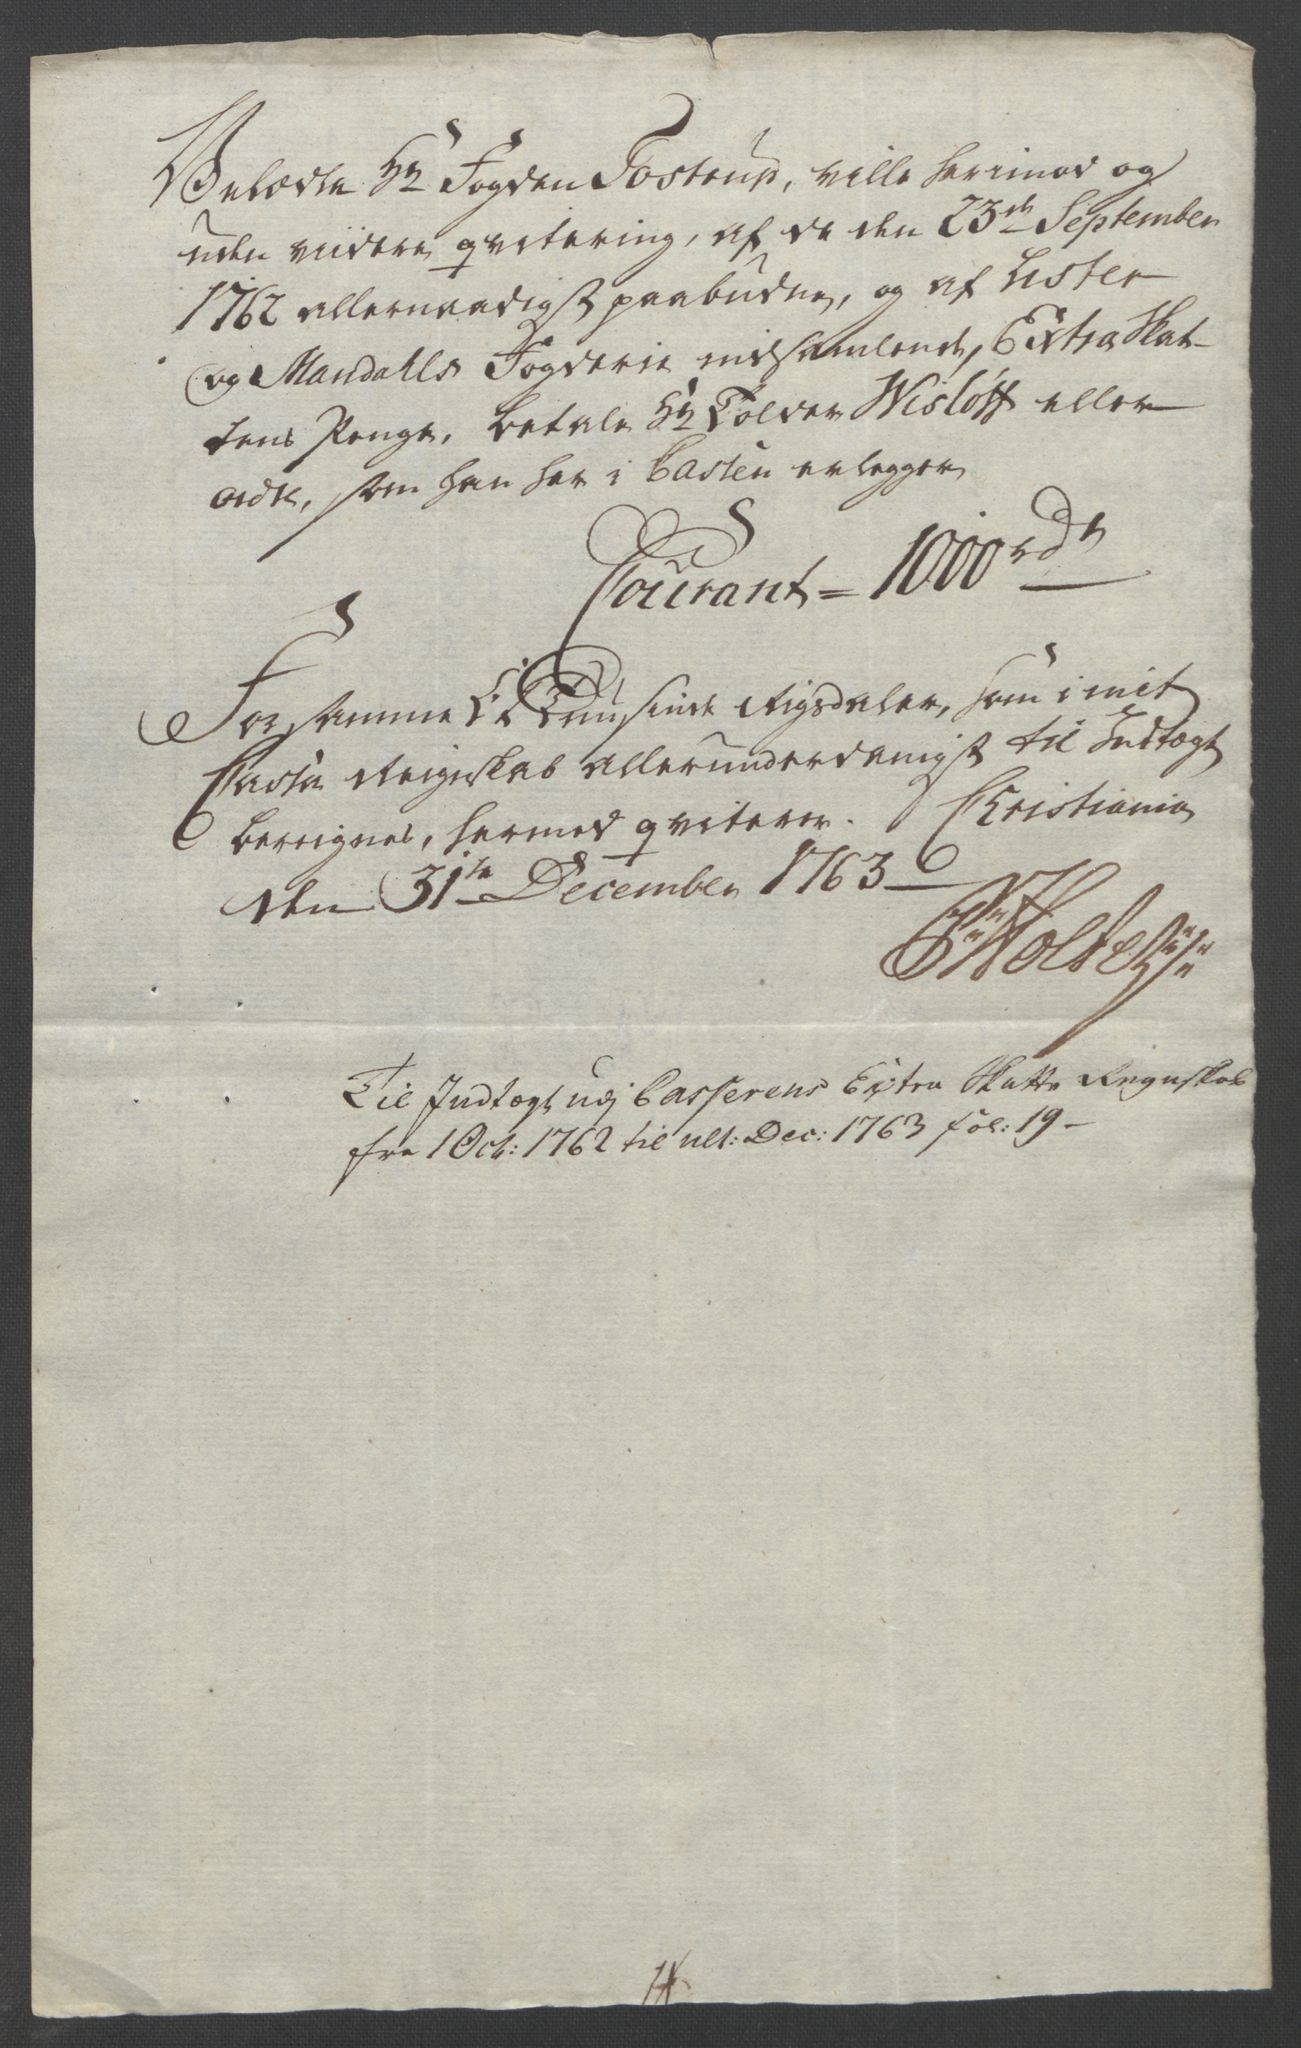 Velædle Hr Fogden Tostrup, ville herimod og
uden viidere qvitering, af de den 23de September
1762 allernaadigst paabudne, og af Lister
og Mandahls Fogderie indsamlende, Extra Skat-
tens Penge, betale Hr Tolder Wisløff eller
ordre, som han her i Cassen erlegger
Courant = 1000 rdr
For samme Et Tusinde Rigsdaler, som i mit
Cassa Reignskab allerunderdanigst til Indtægt
bereignes, hermed qviterer. Christiania
den 31te December 1763
Holte
Til Indtægt udj Casserens Extra Skatte Regnskab
fra 1 Oct: 1762 til ult: Dec: 1763 fol: 19 -